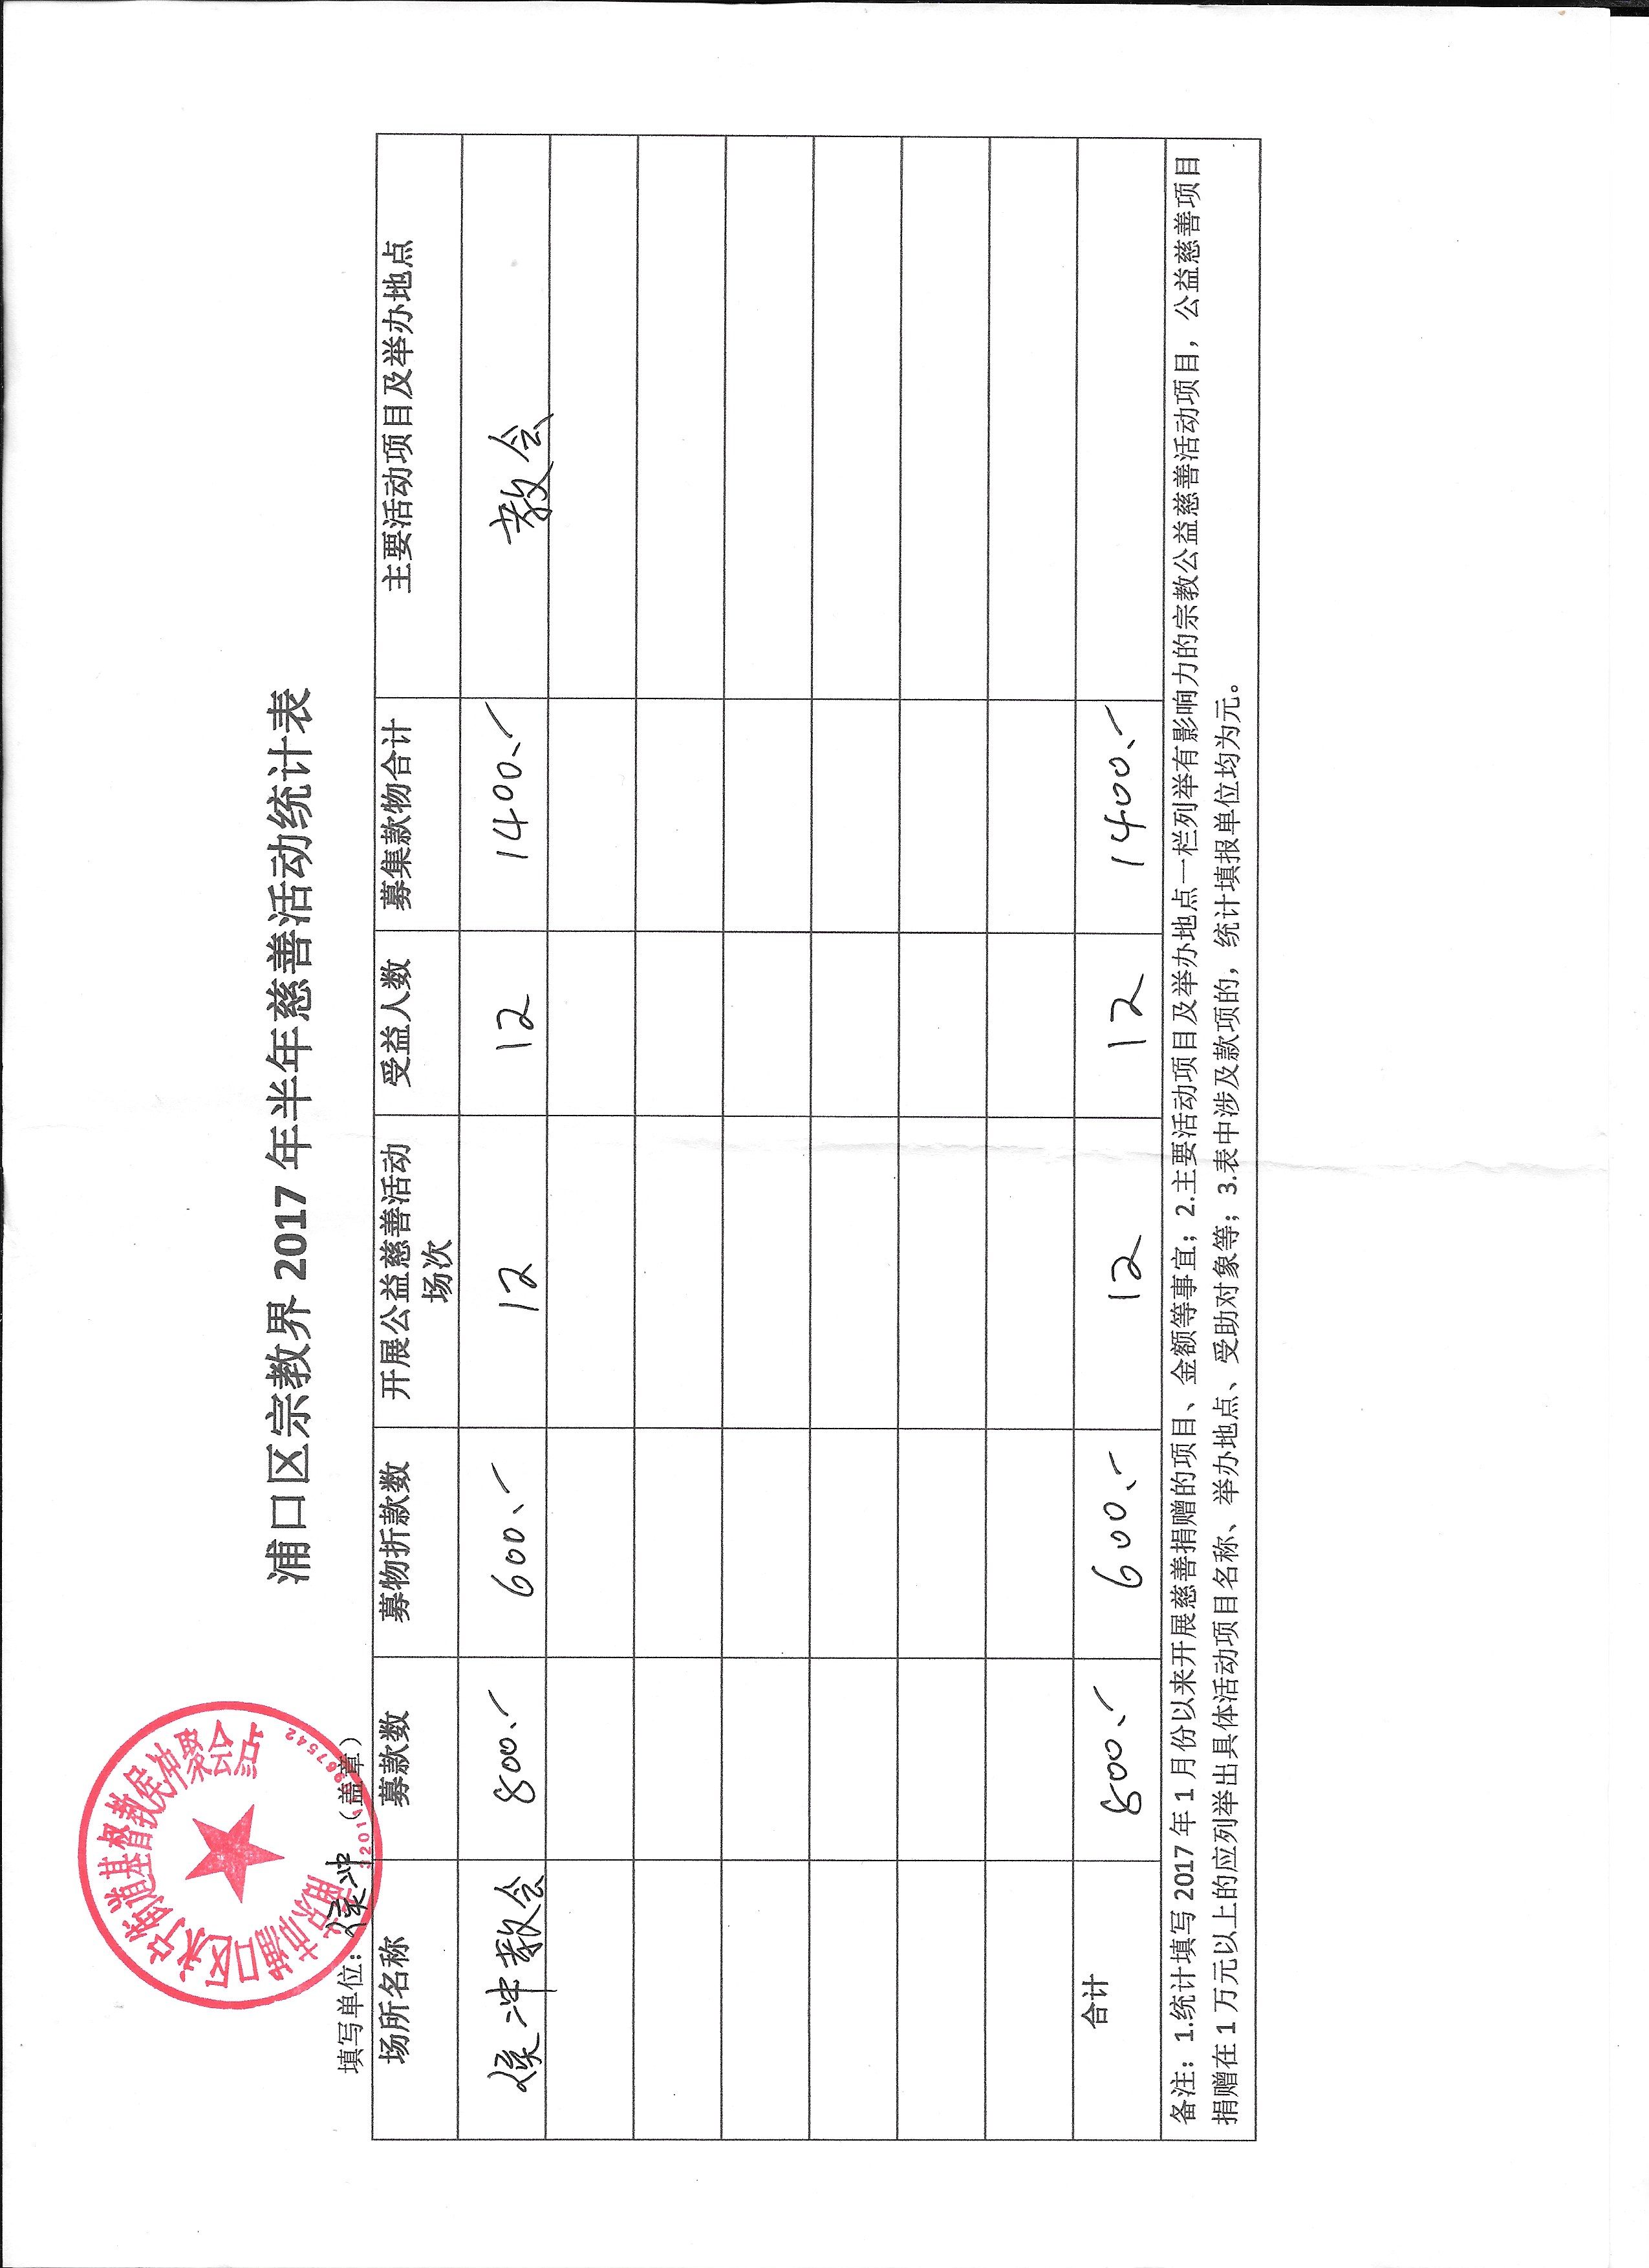 南京市浦口区永宁街道基督教侯冲聚会点
浦口区宗教界 2017 年半年慈善活动统计表
填写单位：侯冲 （盖章）
场所名称 募款数 募物折款数 开展公益慈善活动场次 受益人数 募集款物合计 主要活动项目及举办地点
侯冲教会 800.- 600.- 12 12 1400.- 教会
合计 800.- 600.- 12 12 1400.-
备注：1.统计填写 2017 年 1 月份以来开展慈善捐赠的项目、金额等事宜；2.主要活动项目及举办地点一栏列举有影响力的宗教公益慈善活动项目，公益慈善项目
捐赠在 1 万元以上的应列举出具体活动项目名称、举办地点、受助对象等；3.表中涉及款项的，统计填报单位均为元。